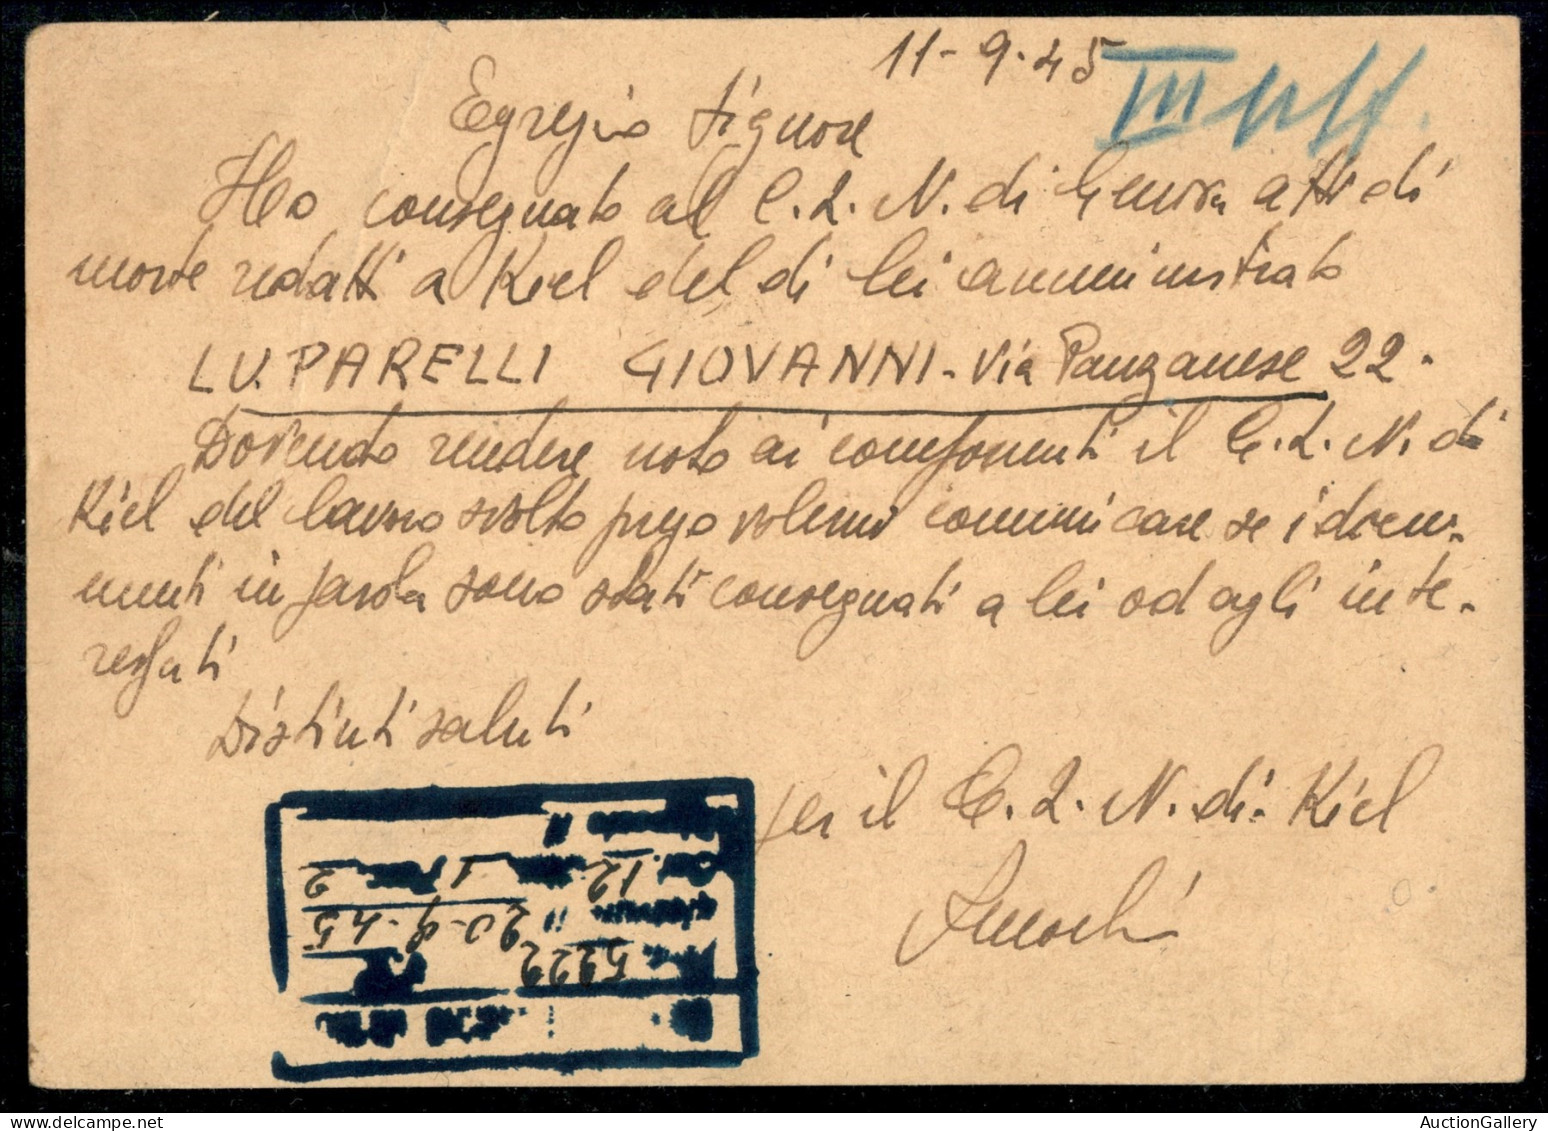 11-9-45
III uff.
Egregio Signore
Ho consegnato al C.L.N. di Genova atti di
morte redatti a Kiel del di lei amministrato
LUPARELLI GIOVANNI - Via Panzanese 22-
Dovendo rendere noto ai componenti il C.L.N. di
Kiel del lavoro svolto prego volermi comunicare se i docu-
menti in parola sono stati consegnati a lei od agli inte-
ressati
Distinti saluti
per il C.L.N. di Kiel
5222
20-9-45
12 1 2
AuctionGallery